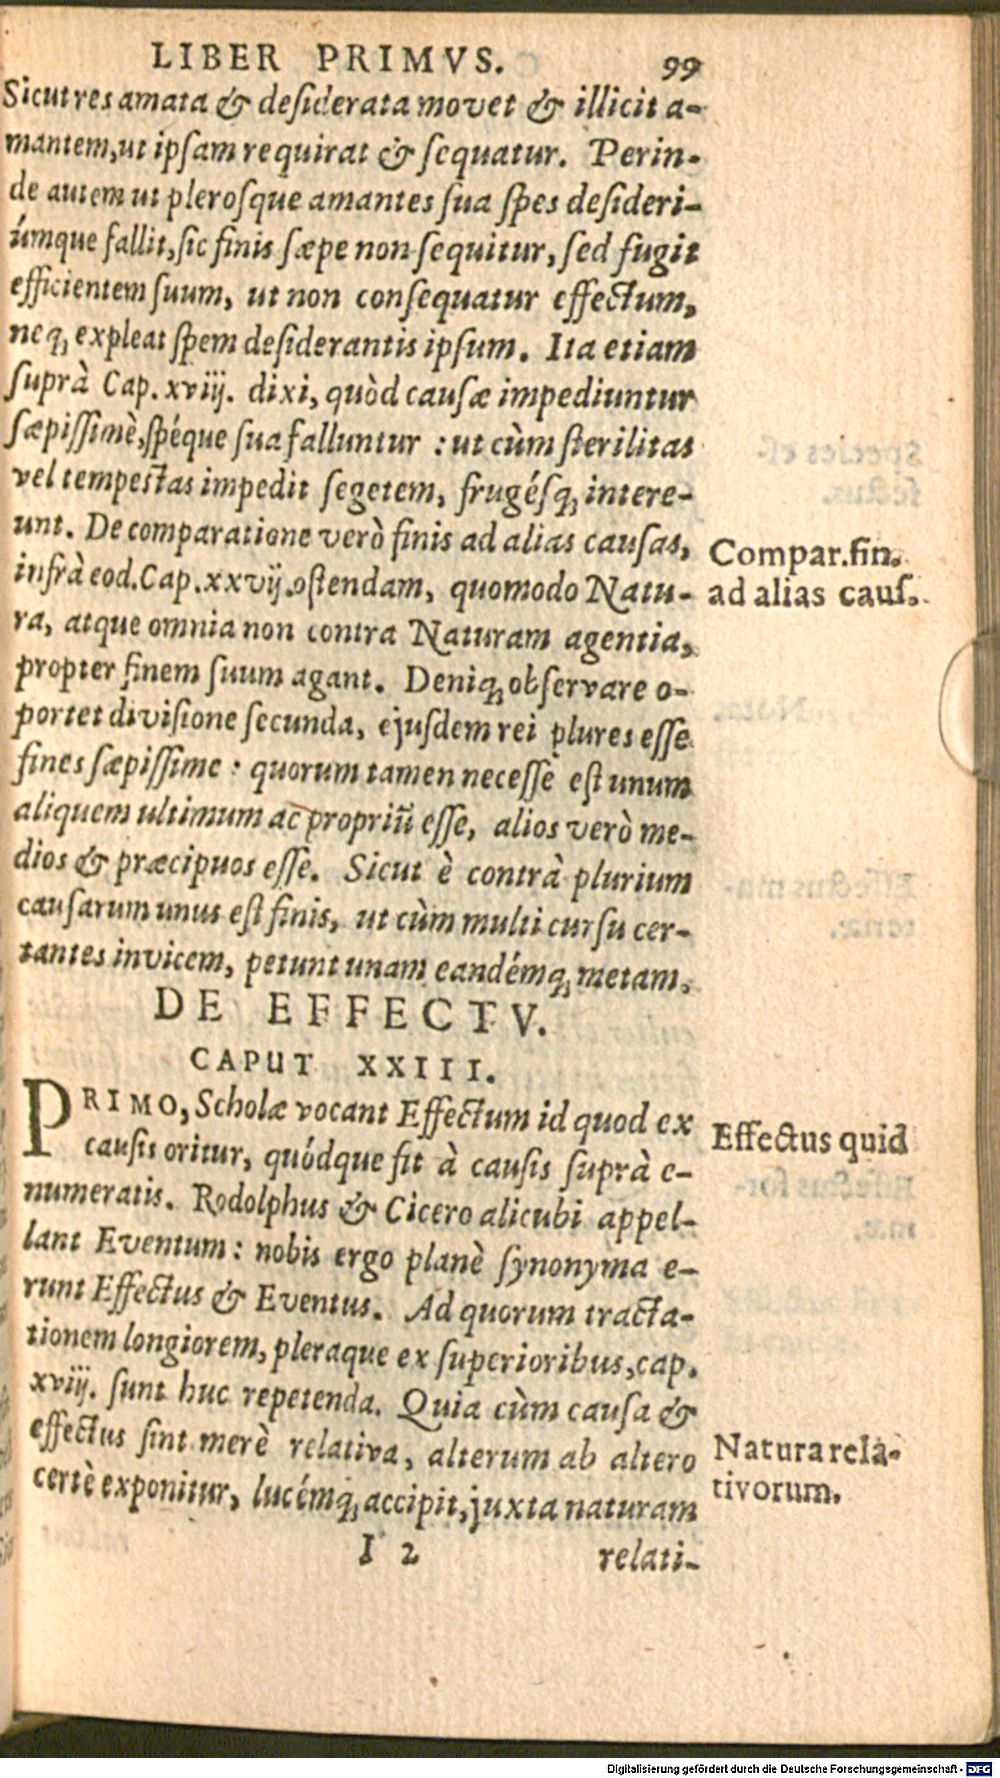 LIBER PRIMVS. 99
Sicut res amata & desiderata movet & illicit a-
mantem, ut ipsam requirat & sequatur. Perin-
de autem ut plerosque amantes sua spes desideri-
úmque fallit, sic finis sæpe non sequitur, sed fugit
efficientem suum, ut non consequatur effectum,
neq; expleat spem desiderantis ipsum. Ita etiam
suprà Cap. xviij. dixi, quòd causæ impediuntur
sæpissimè, spéque sua falluntur : ut cùm sterilitas
vel tempestas impedit segetem, frugésq; intere-
unt. De comparatione verò finis ad alias causas,
infrà eod. Cap. xxvij. ostendam, quomodo Natu-
ra, atque omnia non contra Naturam agentia,
propter finem suum agant. Deniq; observare o-
portet divisione secunda, ejusdem rei plures esse
fines sæpissime : quorum tamen necesse est unum
aliquem ultimum ac propriū esse, alios verò me-
dios & præcipuos esse. Sicut è contrà plurium
causarum unus est finis, ut cùm multi cursu cer-
tantes invicem, petunt unam eandémq; metam.
Compar. fin.
ad alias caus.
DE EFFECTV.
CAPUT XXIII.
PRIMO, Scholæ vocant Effectum id quod ex
causis oritur, quódque fit à causis suprà e-
numeratis. Rodolphus & Cicero alicubi appel-
lant Eventum : nobis ergo planè synonyma e-
runt Effectus & Eventus. Ad quorum tracta-
tionem longiorem, pleraque ex superioribus, cap.
xviij. sunt huc repetenda. Quia cùm causa &
effectus sint merè relativa, alterum ab altero
certè exponitur, lucémq; accipit, juxta naturam
Effectus quid
Natura rela-
tivorum.
I 2 relati-
Digitalisierung gefördert durch die Deutsche Forschungsgemeinschaft - DFG